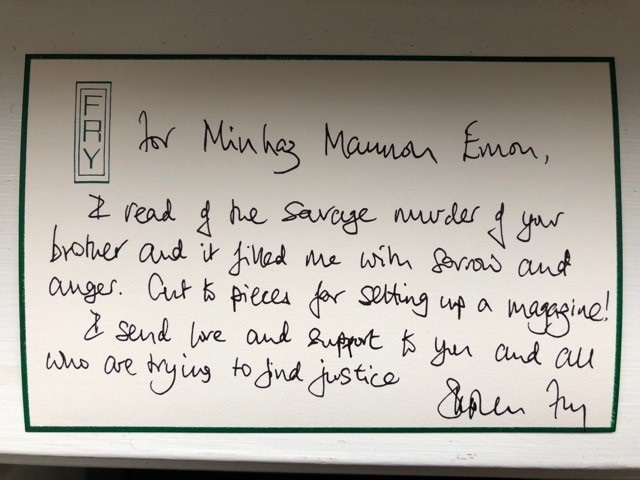 FRY
for Minhaz Mannon Emon,
I read of the savage murder of your
brother and it filled me with sorrow and
anger. Cut to pieces for setting up a magazine!
I send love and support to you and all
who are trying to find justice
Stephen Fry